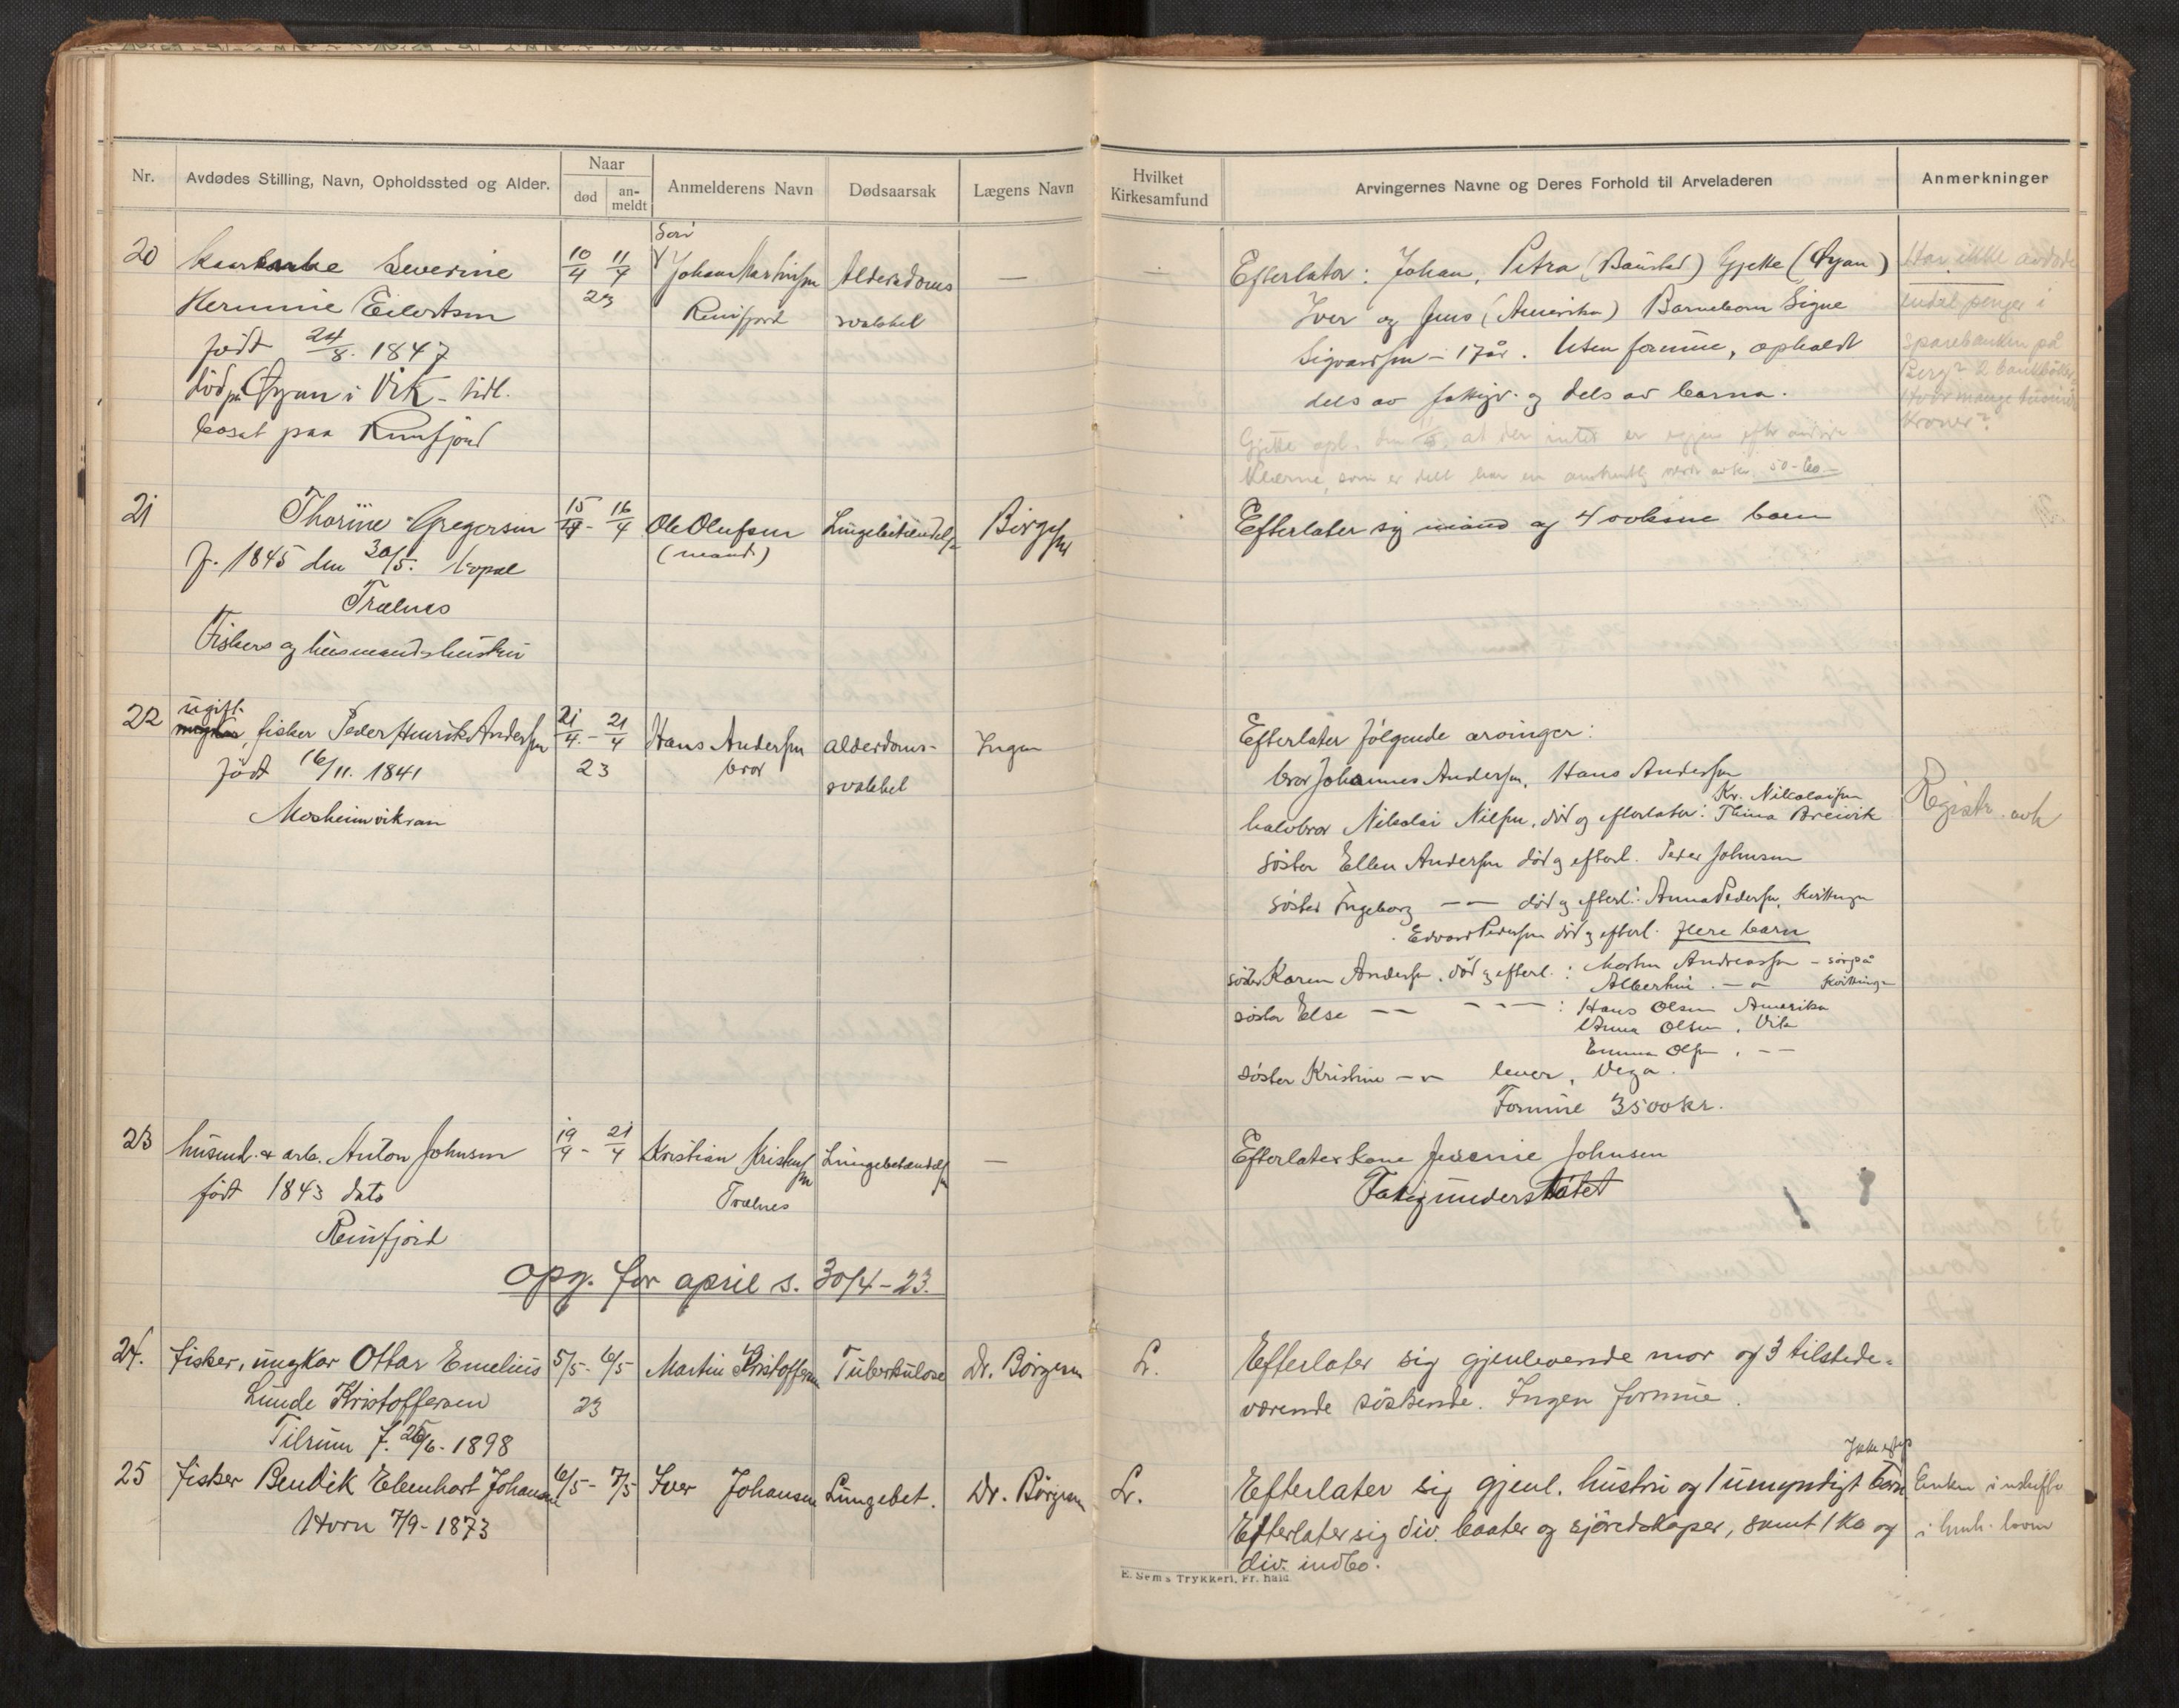 Nr.
Avdødes Stilling, Navn, Opholdssted og Alder.
Naar
død
an-
meldt
Anmelderens Navn
Dødsaarsak
Lægens Navn
Hvilket
Kirkesamfund
Arvingernes Navne og Deres Forhold til Arveladeren
Anmerkninger
20
Severine
Hermine Eilertsen
født 24/8. 1847
död på Øyan i Vik - tidl.
bosat paa Reinfjord
10/4 11/4
23
Johan Martinsen
Reinfjord
Alderdoms
svakhet
—
Efterlater: Johan, Petra (Baustad) Gjette (Øyan)
Iver og Jens (Amerika) Barnebarn Signe
Sigvardsen - 17 år. Uten formue, opholdt
dels av fattigv. og dels av barna.
Gjette opl. den at der intet er igjen efter avdøde
Klærne, som er delt har en 50-60.-
Har ikke avdøde
endel penger i
sparebanken på
Berg? 2 bankbøker
Hvor mange tusinde
kroner?
21
Thorine Gregersen
f. 1845 den 30/5.
Trælnes
Fiskers og husmandshustru
15/4 - 16/4
Ole Olufsen
(mand)
Lungebetændelse
Börgesen
Efterlater sig mand og 4 voksne barn
22
ugift
fisker Peder Henrik Andersen
født 16/11. 1841
Mosheimvikran
21/4. - 21/4
23
Hans Andersen
bror
alderdoms-
svakhet
Ingen
Efterlater følgende arvinger:
bror Johannes Andersen, Hans Andersen
Kr. Nikolaisen
halvbror Nikolai Nilsen, död og efterlater: Thina Breivik
søster Ellen Andersen död og efterl. Peder Johnsen
søster Ingeborg — — död og efterl.: Anna Pedersen, Kvittingen
Edvard Pedersen död og efterl. flere barn
søster Karen Andersen, död og efterl.: Morten Andreassen - sørpå
Albertine - " - Kvittingen
søster Else — — — — — : Hans Olsen Amerika
Anna Olsen, Vik
Emma Olsen, — —
søster Kristine - " - lever, Vega.
Formue 3500 kr.
Registr. avh
23
husmd. & arb. Anton Johnsen
født 1843 dato
Reinfjord
19/4 - 21/4
Kristian Kristensen
Trælnes
Lungebetændelse
—
Efterlater kone Johnsen
Fattigunderstøttet
opg. for april s. 30/4 - 23.
24.
fisker, ungkar Ottar Emelius
Lunde Kristoffersen
Tilrum f. 26/6 - 1898
5/5 - 6/5
23
Martin Kristoffersen
Tuberkulose
Dr. Börgesen
L.
Efterlater sig gjenlevende mor og 3 tilstede-
værende söskende. Ingen formue.
25
fisker Bendik Ebenhart Johansen
Horn 7/9 - 1873
6/5 - 7/5
Iver Johansen
Lungebet.
Dr. Börgesen
L.
Efterlater sig gjenl. hustru og 1 umyndigt barn
Efterlater sig div. baater og sjöredskaper, samt 1 ko og
div. indbo.
Enken i uskifte
i lovm
E. Sem's Trykkeri, Fr.hald